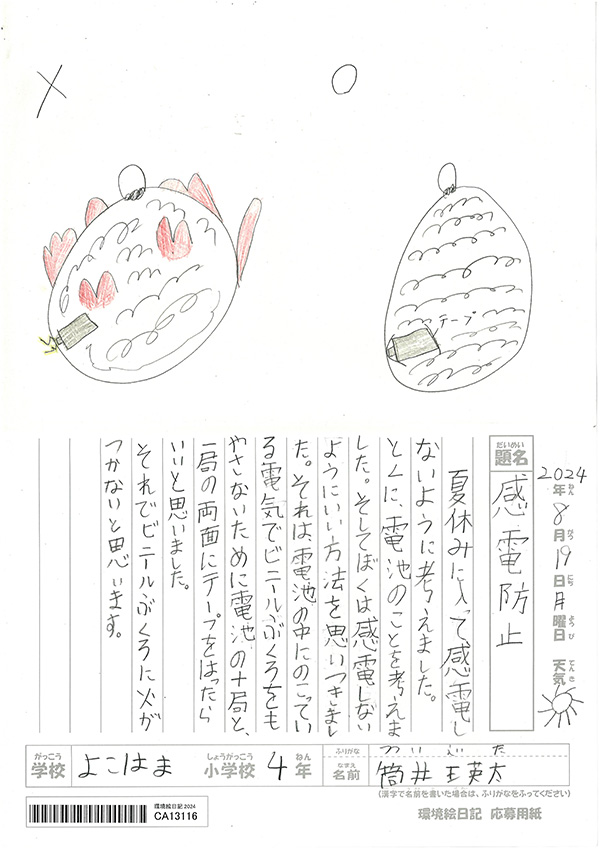 ×
○
テープ
2024年8月19日月曜日 天気
ねん
がつ
にち
ようび
てんき
だいめい
題名
感電防止
夏休みに入って感電し
ないように考えました。
とくに、電池のことを考えま
した。そしてぼくは感電しない
ようにいい方法を思いつきまし
た。それは、電池の中にのこってい
る電気でビニールぶくろをも
やさないために電池の十局と、
一局の両面にテープをはったら
いいと思いました。
それでビニールぶくろに火が
つかないと思います。
がっこう
学校
よこはま
しょうがっこう
小学校
4
ねん
年
ふりがな
つついえいた
なまえ
名前
筒井瑛太
(漢字で名前を書いた場合は、ふりがなをふってください)
環境絵日記2024
CA13116
環境絵日記 応募用紙